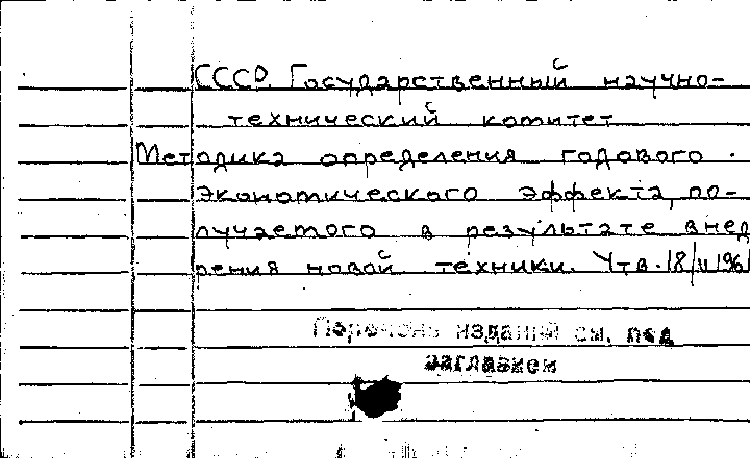 СССР. Государственный научно-
технический комитет
Методика определения годового
экономического эффекта, по-
лучаемого в результате внед
рения новой техники. Утв. 18/II 196
Перечень изданий см. под
заглавием